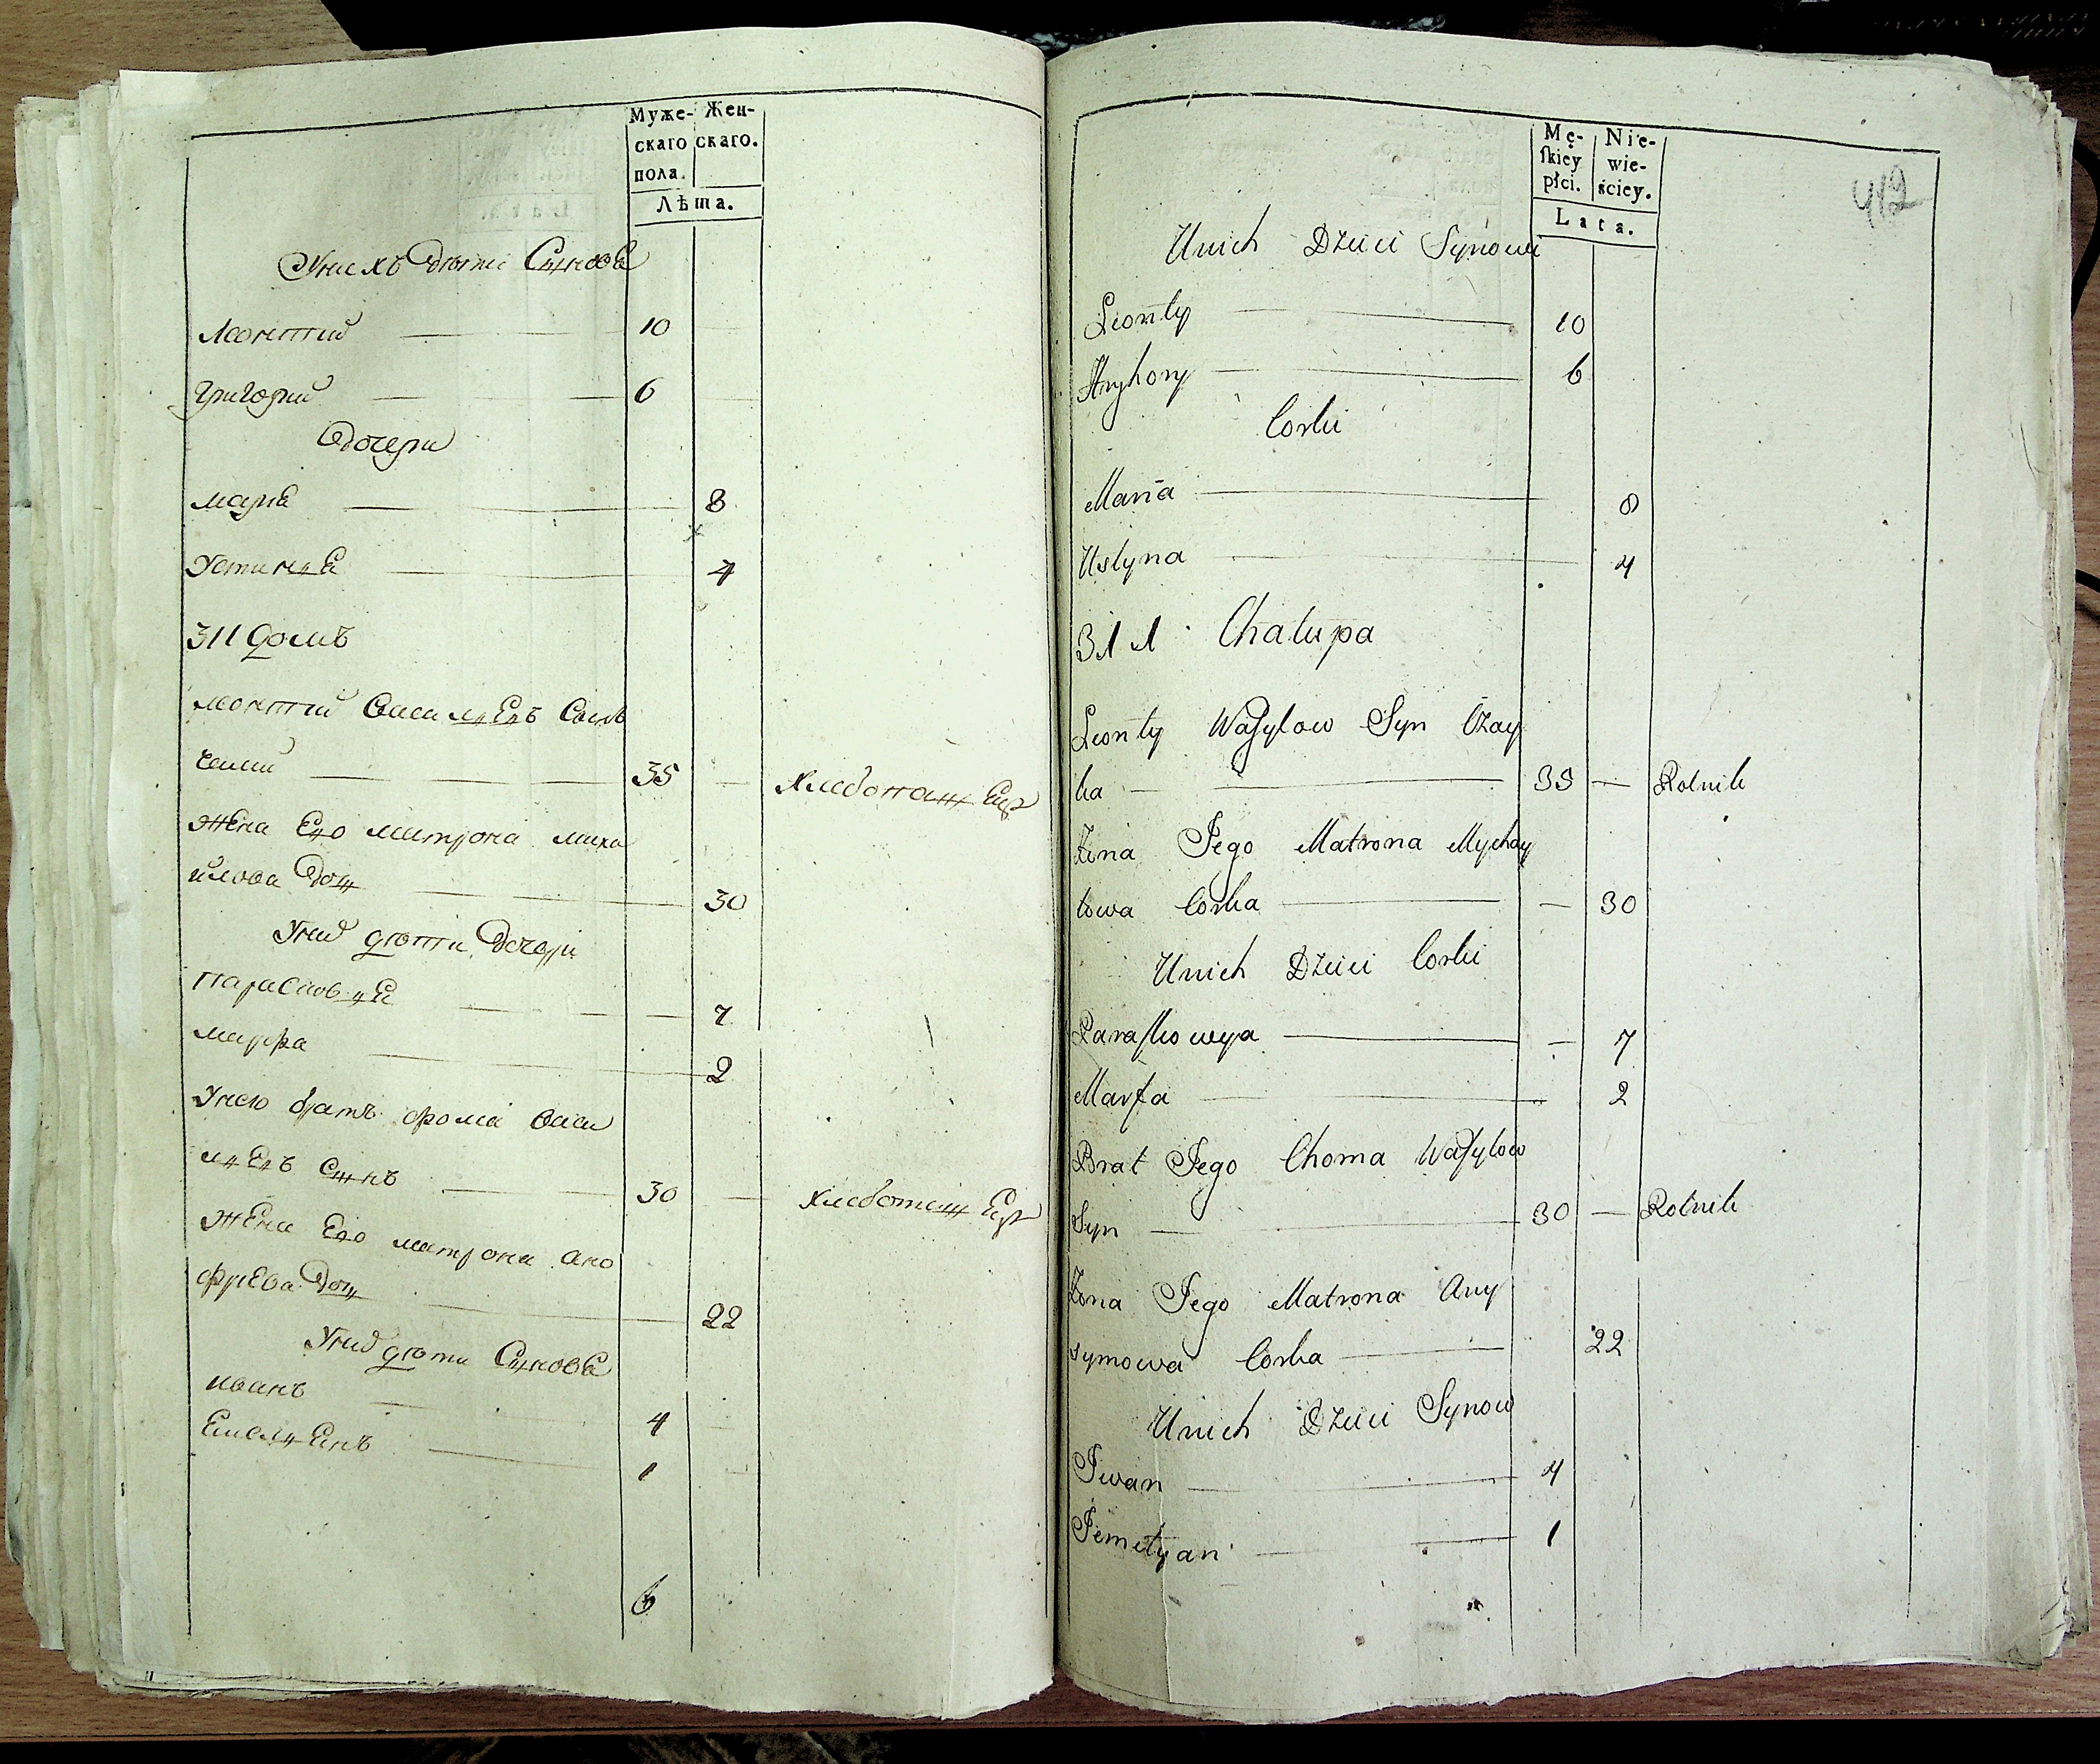 Муже- Жен-
скаго скаго.
пола.
Лѣта.
Унихъ дѣти Сынове
Леонтий 10
Григорий 6
Дочери
Мария 8
Устиния 4
311 домъ
Леонтий Василиевъ Сынъ
35 хлебопашец
Жена Его матрона миха
йлова дощ 30
Уних дѣти дочери
Парасковия 7
марфа 2
Унего братъ фома Васи
лиевъ Сынъ 30 хлебопашец
Жена Его матрона ано
фриева дощ 22
Уних дѣти Сынове
иванъ 4
Емелиянъ 1
6
Mę- Nie-
ſkiey wie-
płci. ściey.
Lata.
412
Unich Dzieci Synowe
Leonty 10
Hryhory 6
Corki
Maria 8
Ustyna 4
311 Chalupa
Leonty Waſylow Syn Czay
ka 35 — Rolnik
Zona Jego Matrona Mychay
lowa Corka — 30
Unich Dzieci Corki
Paraſkowya — 7
Marfa 2
Brat Jego Choma Waſylow
Syn 30 — Rolnik
Zona Jego Matrona Any
symowa Corka 22
Unich Dzieci Synow
Iwan 4
Jemelyan 1